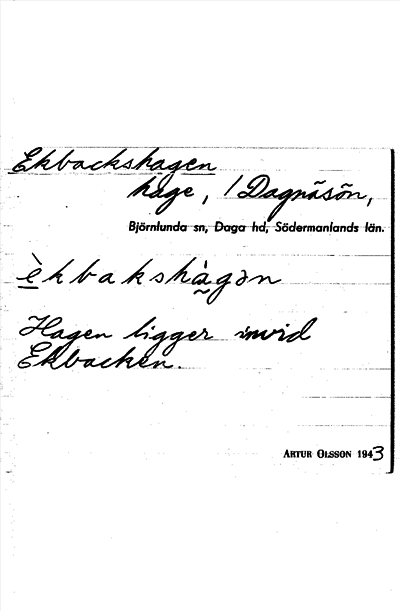 Ekbackshagen
hage, / Dagnäsön,
Björnlunda sn, Daga hd, Södermanlands län.
è̱kbakshà̰gən
Hagen ligger invid
Ekbacken.
ARTUR OLSSON 1943